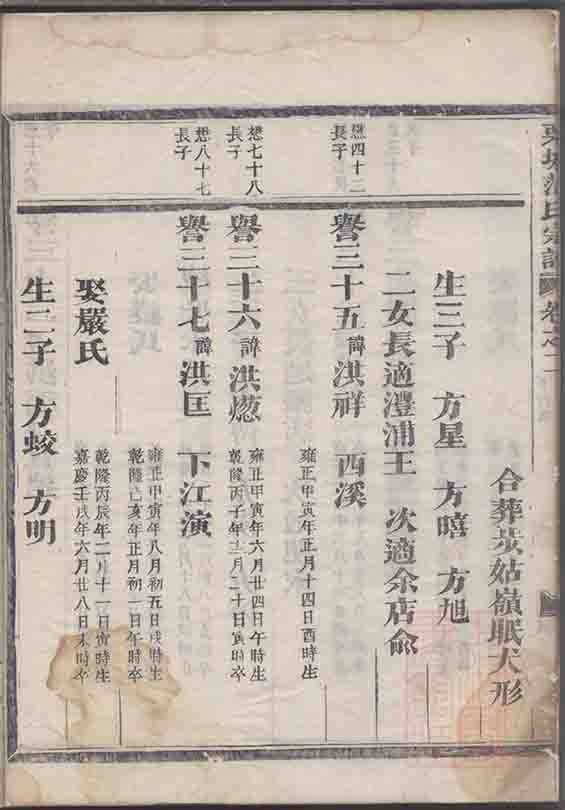 宗譜 卷之二
合葬癸姑嶺眠犬形
生三子 方星 方暿 方旭
二女長適澧浦王 次適余店俞
懋四十二
長子
譽三十五諱洪祥 西溪
雍正甲寅年正月十四日酉時生
懋七十八
長子
譽三十六諱洪熜
雍正甲寅年六月廿四日午時生
乾隆丙子年十二月二十日寅時卒
懋八十七
長子
譽三十七諱洪匡 下江演
雍正甲寅年八月初五日戌時生
乾隆乙亥年正月初一日午時卒
娶嚴氏
乾隆丙辰年二月十一日寅時生
嘉慶壬戌年六月廿八日未時卒
生二子 方蛟 方明